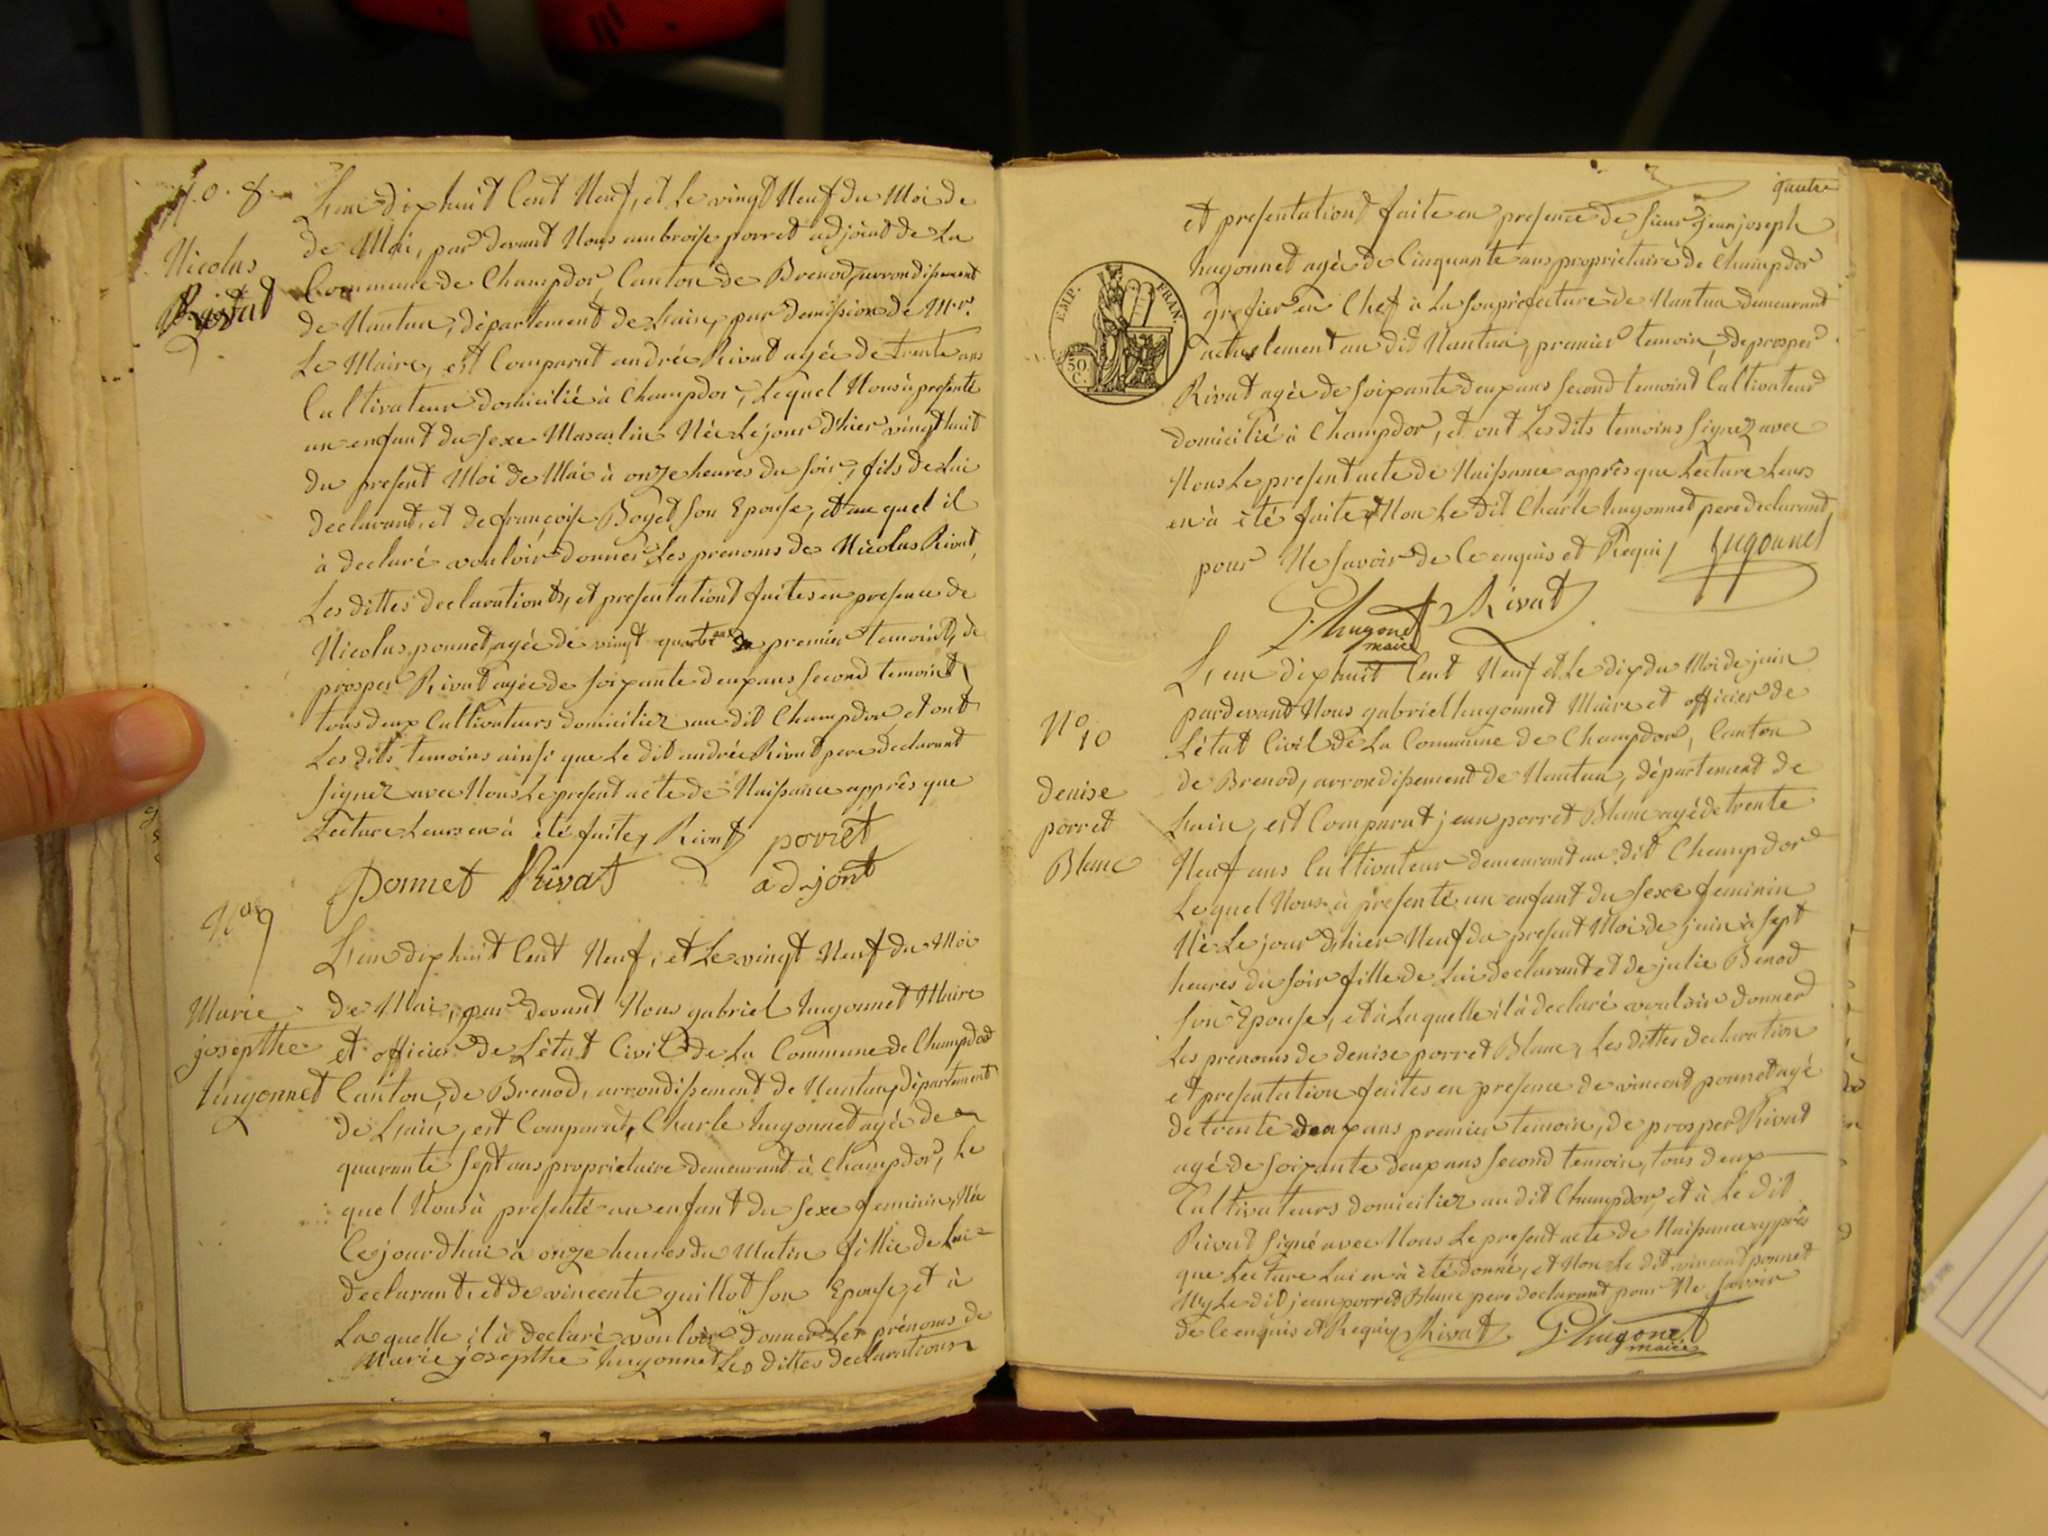 N.o. 8.
Nicolas
Rivat
L'an dixhuit Cent Neuf, et Le vingt Neuf du Moi de
de Mai, par devant Nous ambroise porret adjoint de La
Commune de Champdor, Canton de Brenod, arrondissement
de Nantua, département de Lain, par demission de Mr.
Le Maire, est Comparut andrée Rivat agée de trente ans
Cultivateur domicilié à Champdor, Lequel Nous à presenté
un enfant du sexe Masculin Née Le jour d'hier vingt huit
du present Moi de Mai à onze heures du soir, fils de Lui
declarant, et de françoise Boget son Epouse, et au quel il
à declaré vouloir donner Les prenoms de Nicolas Rivat,
Les dittes declarations, et presentationt faites en presence de
Nicolas ponnet agée de vingt quatre premier temoint, de
prosper Rivat agée de soixante deux ans second temoint,
tous deux Cultivateurs domiciliez au dit Champdor et ont
Les dits temoins ainsi que Le dit andrée Rivat pere declarant
signez avec Nous Le present acte de Naissance apprês que
Lecture Leurs en à été faite, Rivat porret
Ponnet Rivat adjoint
No. 9
Marie
josepthe
hugonnet
L'an dixhuit Cent Neuf, et Le vingt Neuf du Moi
de Mai, par devant Nous gabriel hugonnet Maire
et officier de L'état Civil de La Commune de Champdor
Canton, de Brenod, arrondissement de Nantua, département
de Lain, est Comparut, Charle hugonnet agée de
quarante sept ans proprietaire demeurant à Champdor, Le
quel Nous à presenté un enfant du sexe feminin, Née
Cejourdhui à onze heures du Matin fillie de Lui
declarant, et de vincente guillot son Epouse, et à
La quelle il à declaré vouloir donner Les prénoms de
Marie josepthe hugonnet Les dittes declarations
quatre
et presentationt faite en presence de sieur jean joseph
hugonnet agée de Cinquante ans proprietaire de Champdor
grefier en Chef à La souprefecture de Nantua demeurant
actuelement au dit Nantua, premier temoin, de prosper
Rivat agée de soixante deux ans second temoint Cultivateur
domicilié à Champdor, et ont Les dits temoins signez avec
Nous Le present acte de Naissance apprês que Lecture Leurs
en à été faite et Non Le dit Charle hugonnet pere declarant,
pour Ne savoir de Ce enquis et Requis, hugonnet
G. hugonet Rivat
maire
EMP. FRAN.
50 C.
No
10
denise
porret
Blanc
L'an dixhuit Cent Neuf et Le dix du Moi de juin
pardevant Nous gabriel hugonnet Maire et officier de
L'état Civil de La Commune de Champdor, Canton
de Brenod, arrondissement de Nantua, département de
Lain, est Comparut jean porret Blanc agé de trente
Neuf ans Cultivateur demeurant au dit Champdor
Le quel Nous à présenté un enfant du sexe feminin
Né Le jour d'hier Neuf du present Moi de juin à sept
heures du soir fille de Lui declarant et de julie Benod
son Epouse, et à La quelle il à declaré vouloir donner
Les prénoms de denise porret Blanc, Les dittes declaration
et presentation faites en presence de vincent ponnet agé
de trente deux ans premier temoin, de prosper Rivat
agé de soixante deux ans second temoin, tous deux
Cultivateurs domiciliez au dit Champdor, et à Le dit
Rivat signé avec Nous Le present acte de Naissance apprês
que Lecture Lui en à été donné, et Non Le dit vincent ponnet
Ny Le dit jean porret Blanc pere declarant pour Ne savoir
de Ce enquis et Requis, Rivat G. hugonet
maire